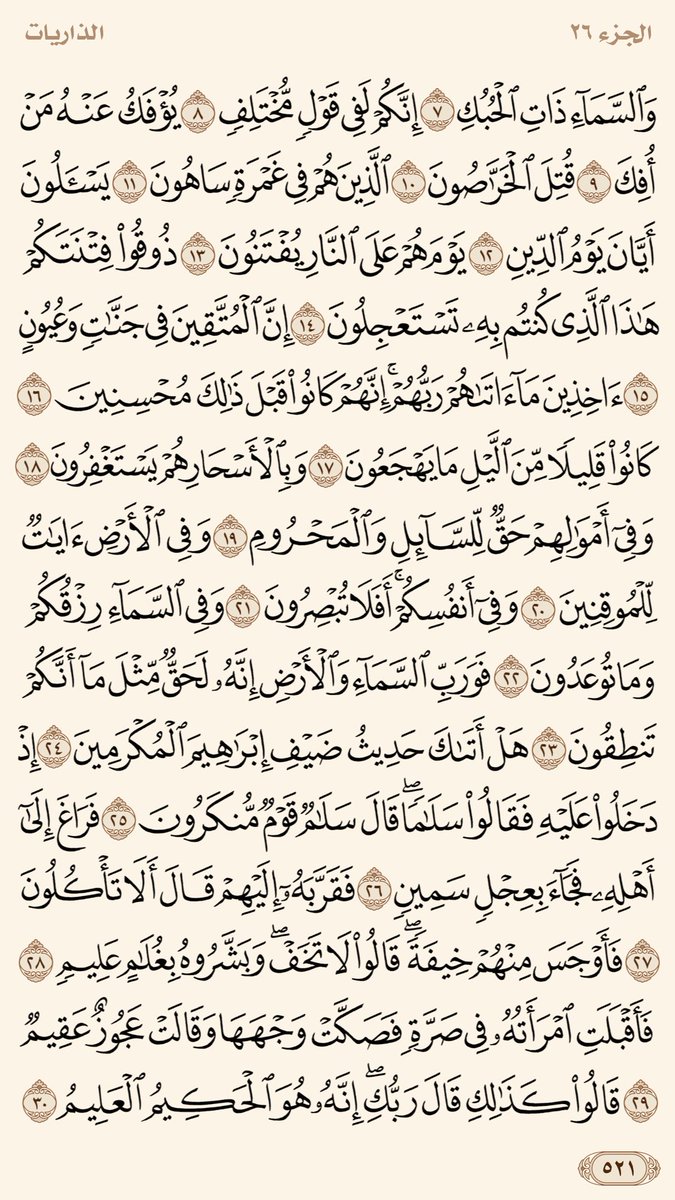 الجزء ٢٦ الذاريات
وَٱلسَّمَآءِ ذَاتِ ٱلۡحُبُكِ ٧ إِنَّكُمۡ لَفِي قَوۡلٖ مُّخۡتَلِفٖ ٨ يُؤۡفَكُ عَنۡهُ مَنۡ
أُفِكَ ٩ قُتِلَ ٱلۡخَرَّٰصُونَ ١٠ ٱلَّذِينَ هُمۡ فِي غَمۡرَةٖ سَاهُونَ ١١ يَسۡـَٔلُونَ
أَيَّانَ يَوۡمُ ٱلدِّينِ ١٢ يَوۡمَ هُمۡ عَلَى ٱلنَّارِ يُفۡتَنُونَ ١٣ ذُوقُواْ فِتۡنَتَكُمۡ
هَٰذَا ٱلَّذِي كُنتُم بِهِۦ تَسۡتَعۡجِلُونَ ١٤ إِنَّ ٱلۡمُتَّقِينَ فِي جَنَّٰتٖ وَعُيُونٍ
١٥ ءَاخِذِينَ مَآ ءَاتَىٰهُمۡ رَبُّهُمۡۚ إِنَّهُمۡ كَانُواْ قَبۡلَ ذَٰلِكَ مُحۡسِنِينَ ١٦
كَانُواْ قَلِيلٗا مِّنَ ٱلَّيۡلِ مَا يَهۡجَعُونَ ١٧ وَبِٱلۡأَسۡحَارِ هُمۡ يَسۡتَغۡفِرُونَ ١٨
وَفِيٓ أَمۡوَٰلِهِمۡ حَقّٞ لِّلسَّآئِلِ وَٱلۡمَحۡرُومِ ١٩ وَفِي ٱلۡأَرۡضِ ءَايَٰتٞ
لِّلۡمُوقِنِينَ ٢٠ وَفِيٓ أَنفُسِكُمۡۚ أَفَلَا تُبۡصِرُونَ ٢١ وَفِي ٱلسَّمَآءِ رِزۡقُكُمۡ
وَمَا تُوعَدُونَ ٢٢ فَوَرَبِّ ٱلسَّمَآءِ وَٱلۡأَرۡضِ إِنَّهُۥ لَحَقّٞ مِّثۡلَ مَآ أَنَّكُمۡ
تَنطِقُونَ ٢٣ هَلۡ أَتَىٰكَ حَدِيثُ ضَيۡفِ إِبۡرَٰهِيمَ ٱلۡمُكۡرَمِينَ ٢٤ إِذۡ
دَخَلُواْ عَلَيۡهِ فَقَالُواْ سَلَٰمٗاۖ قَالَ سَلَٰمٞ قَوۡمٞ مُّنكَرُونَ ٢٥ فَرَاغَ إِلَىٰٓ
أَهۡلِهِۦ فَجَآءَ بِعِجۡلٖ سَمِينٖ ٢٦ فَقَرَّبَهُۥٓ إِلَيۡهِمۡ قَالَ أَلَا تَأۡكُلُونَ
٢٧ فَأَوۡجَسَ مِنۡهُمۡ خِيفَةٗۖ قَالُواْ لَا تَخَفۡۖ وَبَشَّرُوهُ بِغُلَٰمٍ عَلِيمٖ ٢٨
فَأَقۡبَلَتِ ٱمۡرَأَتُهُۥ فِي صَرَّةٖ فَصَكَّتۡ وَجۡهَهَا وَقَالَتۡ عَجُوزٌ عَقِيمٞ
٢٩ قَالُواْ كَذَٰلِكِ قَالَ رَبُّكِۖ إِنَّهُۥ هُوَ ٱلۡحَكِيمُ ٱلۡعَلِيمُ ٣٠
٥٢١